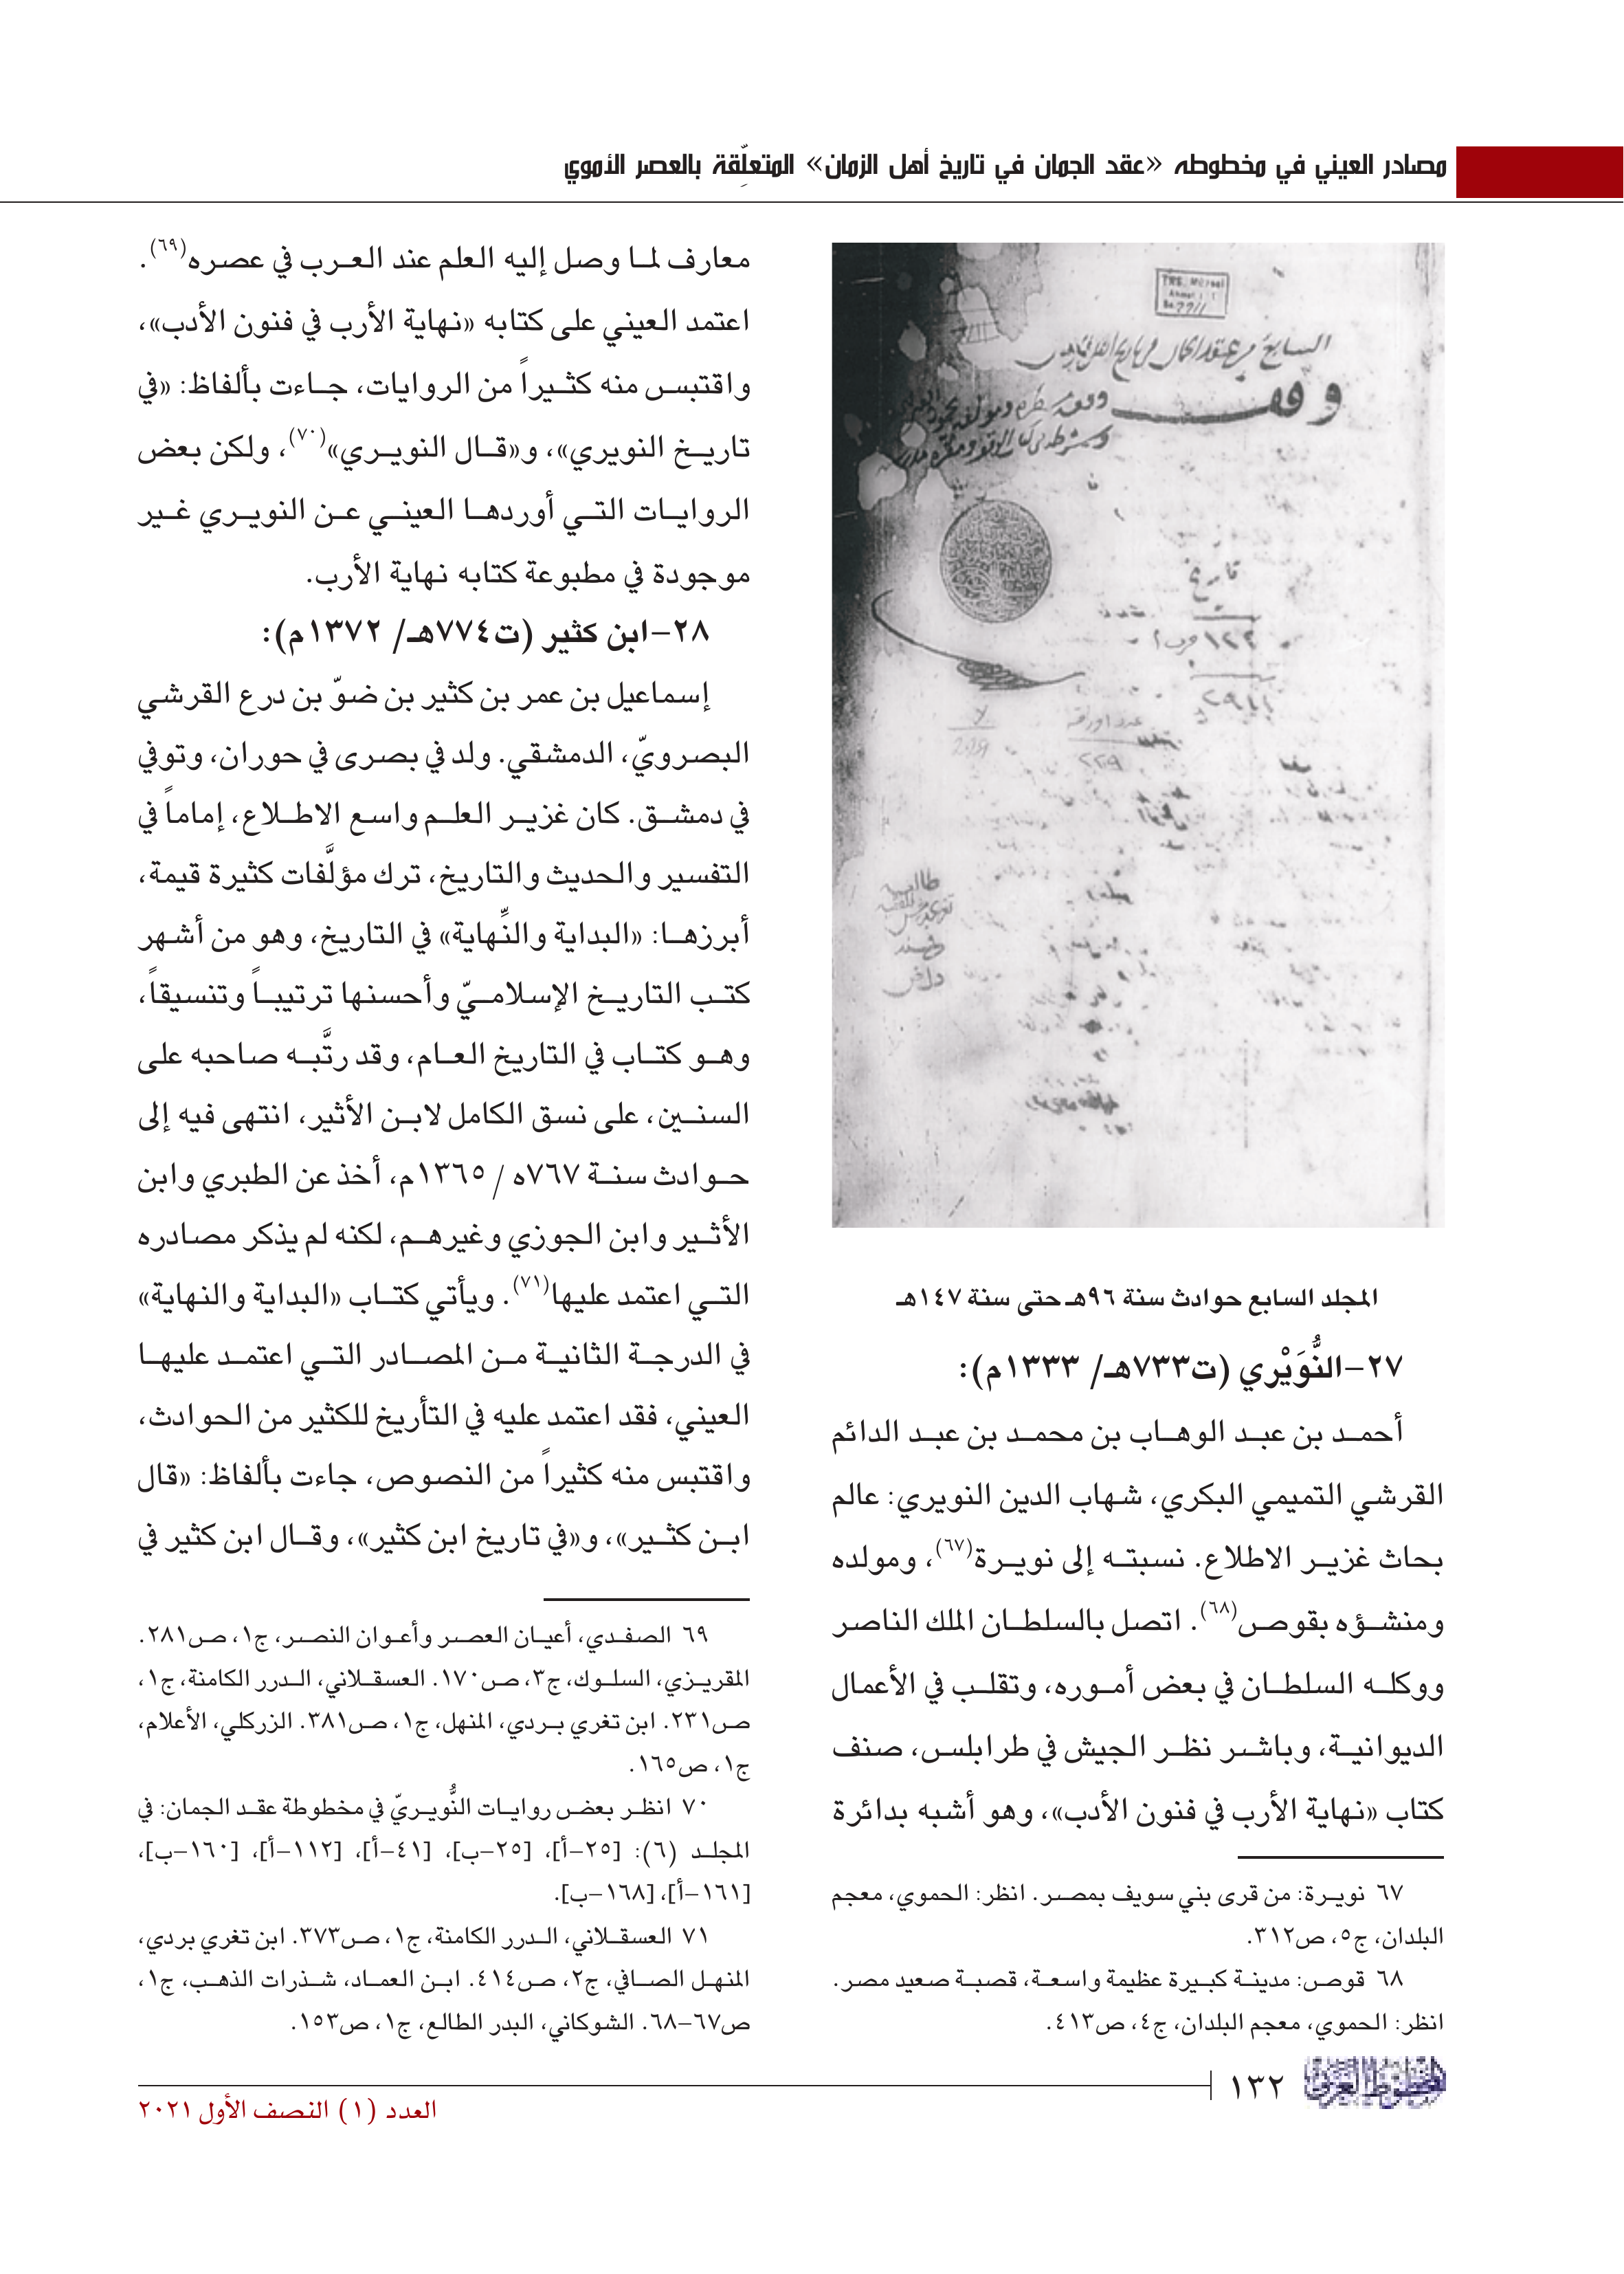 مصادر العيني في مخطوطه «عقد الجمان في تاريخ أهل الزمان» المتعلِّقة بالعصر الأموي
وقف
تاريخ
المجلد السابع حوادث سنة ٩٦هـ حتى سنة ١٤٧هـ
٢٧-النُّوَيْري (ت٧٣٣هـ/ ١٣٣٣م):
أحمد بن عبد الوهاب بن محمد بن عبد الدائم
القرشي التميمي البكري، شهاب الدين النويري: عالم
بحاث غزير الاطلاع. نسبته إلى نويرة(٦٧)، ومولده
ومنشؤه بقوص(٦٨). اتصل بالسلطان الملك الناصر
ووكله السلطان في بعض أموره، وتقلب في الأعمال
الديوانية، وباشر نظر الجيش في طرابلس، صنف
كتاب «نهاية الأرب في فنون الأدب»، وهو أشبه بدائرة
٦٧ نويرة: من قرى بني سويف بمصر. انظر: الحموي، معجم
البلدان، ج٥، ص٣١٢.
٦٨ قوص: مدينة كبيرة عظيمة واسعة، قصبة صعيد مصر.
انظر: الحموي، معجم البلدان، ج٤، ص٤١٣.
معارف لما وصل إليه العلم عند العرب في عصره(٦٩).
اعتمد العيني على كتابه «نهاية الأرب في فنون الأدب»،
واقتبس منه كثيراً من الروايات، جاءت بألفاظ: «في
تاريخ النويري»، و«قال النويري»(٧٠)، ولكن بعض
الروايات التي أوردها العيني عن النويري غير
موجودة في مطبوعة كتابه نهاية الأرب.
٢٨-ابن كثير (ت٧٧٤هـ/ ١٣٧٢م):
إسماعيل بن عمر بن كثير بن ضوّ بن درع القرشي
البصرويّ، الدمشقي. ولد في بصرى في حوران، وتوفي
في دمشق. كان غزير العلم واسع الاطلاع، إماماً في
التفسير والحديث والتاريخ، ترك مؤلَّفات كثيرة قيمة،
أبرزها: «البداية والنِّهاية» في التاريخ، وهو من أشهر
كتب التاريخ الإسلاميّ وأحسنها ترتيباً وتنسيقاً،
وهو كتاب في التاريخ العام، وقد رتَّبه صاحبه على
السنين، على نسق الكامل لابن الأثير، انتهى فيه إلى
حوادث سنة ٧٦٧ه / ١٣٦٥م، أخذ عن الطبري وابن
الأثير وابن الجوزي وغيرهم، لكنه لم يذكر مصادره
التي اعتمد عليها(٧١). ويأتي كتاب «البداية والنهاية»
في الدرجة الثانية من المصادر التي اعتمد عليها
العيني، فقد اعتمد عليه في التأريخ للكثير من الحوادث،
واقتبس منه كثيراً من النصوص، جاءت بألفاظ: «قال
ابن كثير»، و«في تاريخ ابن كثير»، وقال ابن كثير في
٦٩ الصفدي، أعيان العصر وأعوان النصر، ج١، ص٢٨١.
المقريزي، السلوك، ج٣، ص١٧٠. العسقلاني، الدرر الكامنة، ج١،
ص٢٣١. ابن تغري بردي، المنهل، ج١، ص٣٨١. الزركلي، الأعلام،
ج١، ص١٦٥.
٧٠ انظر بعض روايات النُّويريّ في مخطوطة عقد الجمان: في
المجلد (٦): [٢٥-أ]، [٢٥-ب]، [٤١-أ]، [١١٢-أ]، [١٦٠-ب]،
[١٦١-أ]، [١٦٨-ب].
٧١ العسقلاني، الدرر الكامنة، ج١، ص٣٧٣. ابن تغري بردي،
المنهل الصافي، ج٢، ص٤١٤. ابن العماد، شذرات الذهب، ج١،
ص٦٧-٦٨. الشوكاني، البدر الطالع، ج١، ص١٥٣.
المخطوط العربي ١٣٢
العدد (١) النصف الأول ٢٠٢١